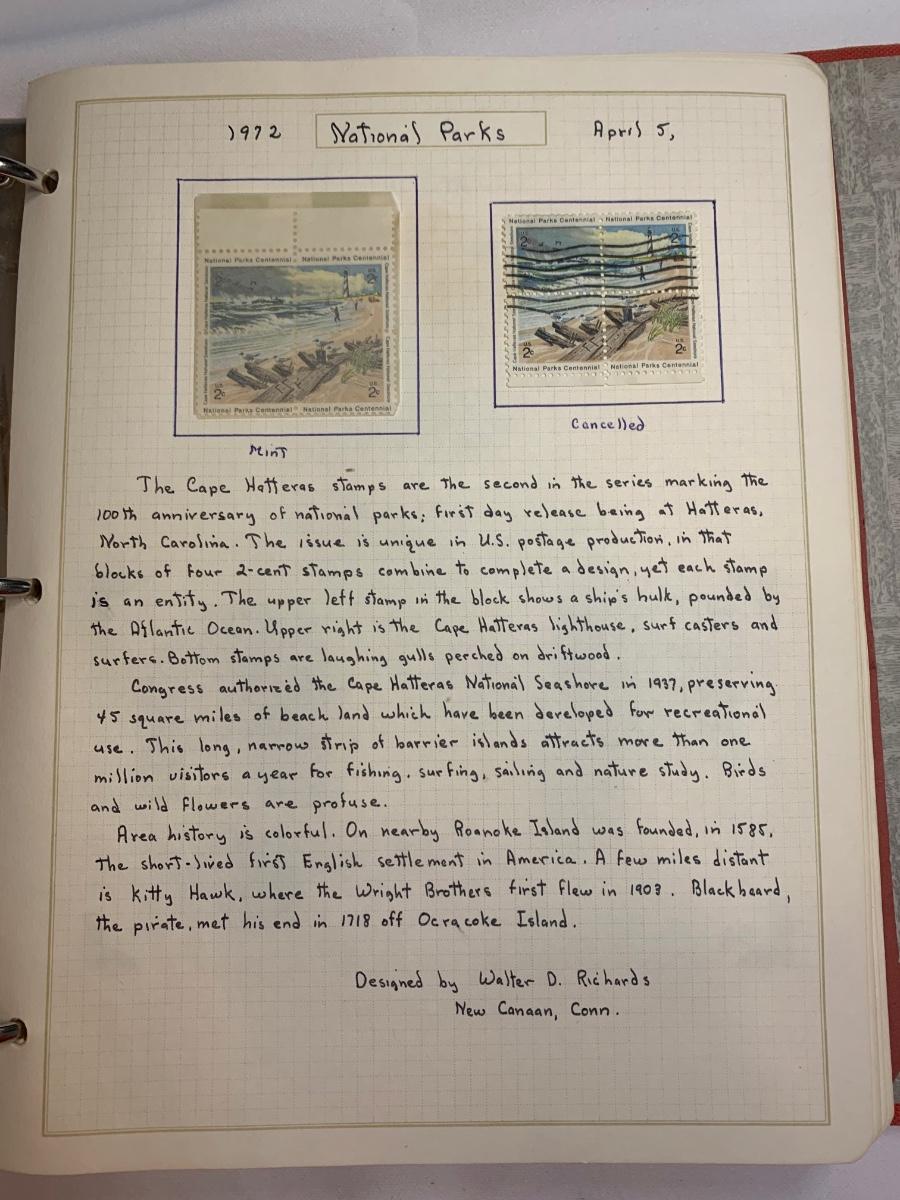 1972 National Parks April 5,
National Parks Centennial National Parks Centennial
2c U.S. 2c
Cape Hatteras National Seashore Cape Hatteras National Seashore
U.S. 2c U.S. 2c
National Parks Centennial National Parks Centennial
Mint
National Parks Centennial National Parks Centennial
U.S. 2c U.S. 2c
Cape Hatteras National Seashore Cape Hatteras National Seashore
U.S. 2c U.S. 2c
National Parks Centennial National Parks Centennial
Cancelled
The Cape Hatteras stamps are the second in the series marking the
100th anniversary of national parks; first day release being at Hatteras,
North Carolina. The issue is unique in U.S. postage production, in that
blocks of four 2-cent stamps combine to complete a design, yet each stamp
is an entity. The upper left stamp in the block shows a ship's hulk, pounded by
the Atlantic Ocean. Upper right is the Cape Hatteras lighthouse, surf casters and
surfers. Bottom stamps are laughing gulls perched on driftwood.
Congress authorized the Cape Hatteras National Seashore in 1937, preserving
45 square miles of beach land which have been developed for recreational
use. This long, narrow strip of barrier islands attracts more than one
million visitors a year for fishing, surfing, sailing and nature study. Birds
and wild flowers are profuse.
Area history is colorful. On nearby Roanoke Island was founded, in 1585,
the short-lived first English settlement in America. A few miles distant
is Kitty Hawk, where the Wright Brothers first flew in 1903. Blackbeard,
the pirate, met his end in 1718 off Ocracoke Island.
Designed by Walter D. Richards
New Canaan, Conn.